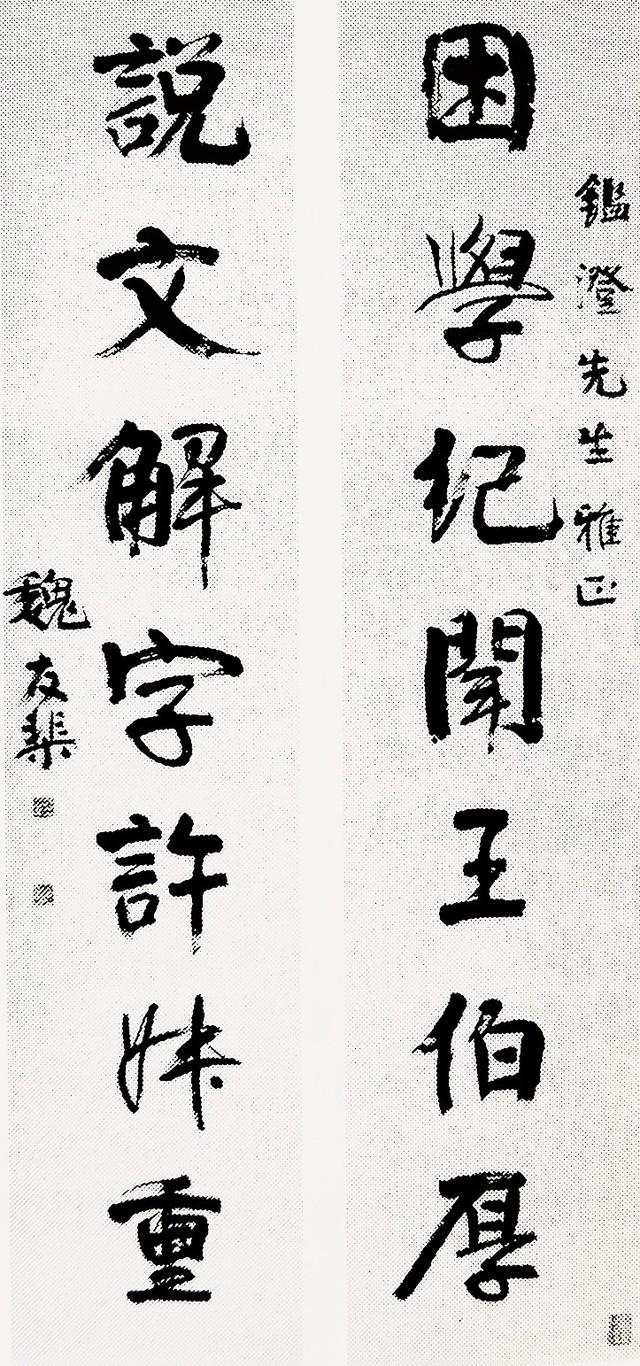 鑑澄先生雅正
困學紀聞王伯厚
說文解字許叔重
魏友棐